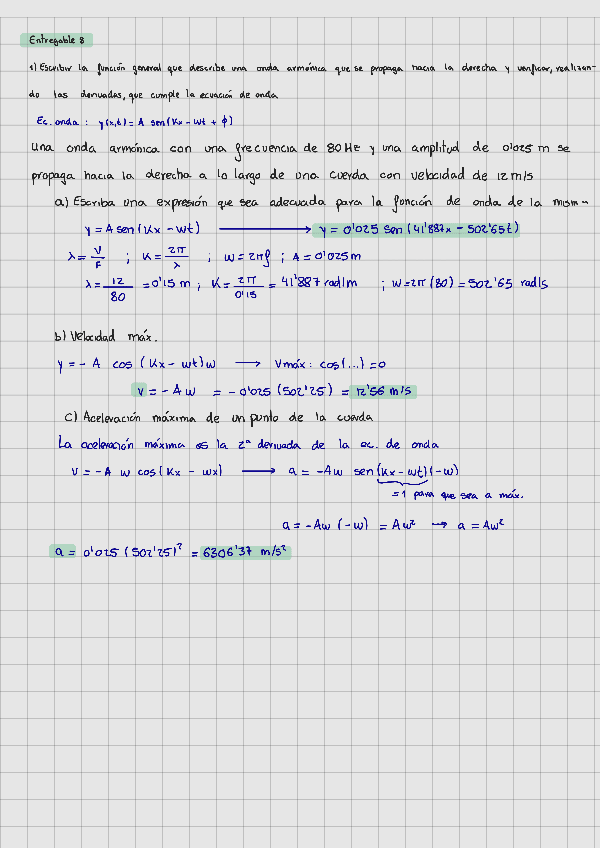 Entregable 8
1) Escribir la función general que describe una onda armónica que se propaga hacia la derecha y verificar, realizan-
do las derivadas, que cumple la ecuación de onda
Ec. onda : y(x,t) = A sen(Kx - wt + ϕ)
Una onda armónica con una frecuencia de 80 Hz y una amplitud de 0'025 m se
propaga hacia la derecha a lo largo de una cuerda con velocidad de 12 m/s
a) Escriba una expresión que sea adecuada para la función de onda de la mism-
y = A sen(Kx - wt) ⟶ y = 0'025 sen (41'887x - 502'65t)
λ = V/F ; K = 2π/λ ; w = 2πf ; A = 0'025 m
λ = 12/80 = 0'15 m ; K = 2π/0'15 = 41'887 rad/m ; w = 2π (80) = 502'65 rad/s
b) Velocidad máx.
y = - A cos (Kx - wt) w ⟶ Vmáx : cos(...) = 0
v = - A w = - 0'025 (502'25) = 12'56 m/s
c) Aceleración máxima de un punto de la cuerda
La aceleración máxima es la 2ª derivada de la ec. de onda
v = - A w cos(Kx - wx) ⟶ a = -Aw sen(Kx - wt)(-w)
= 1 para que sea a máx.
a = -Aw (-w) = Aw² → a = Aw²
a = 0'025 (502'25)² = 6306'37 m/s²